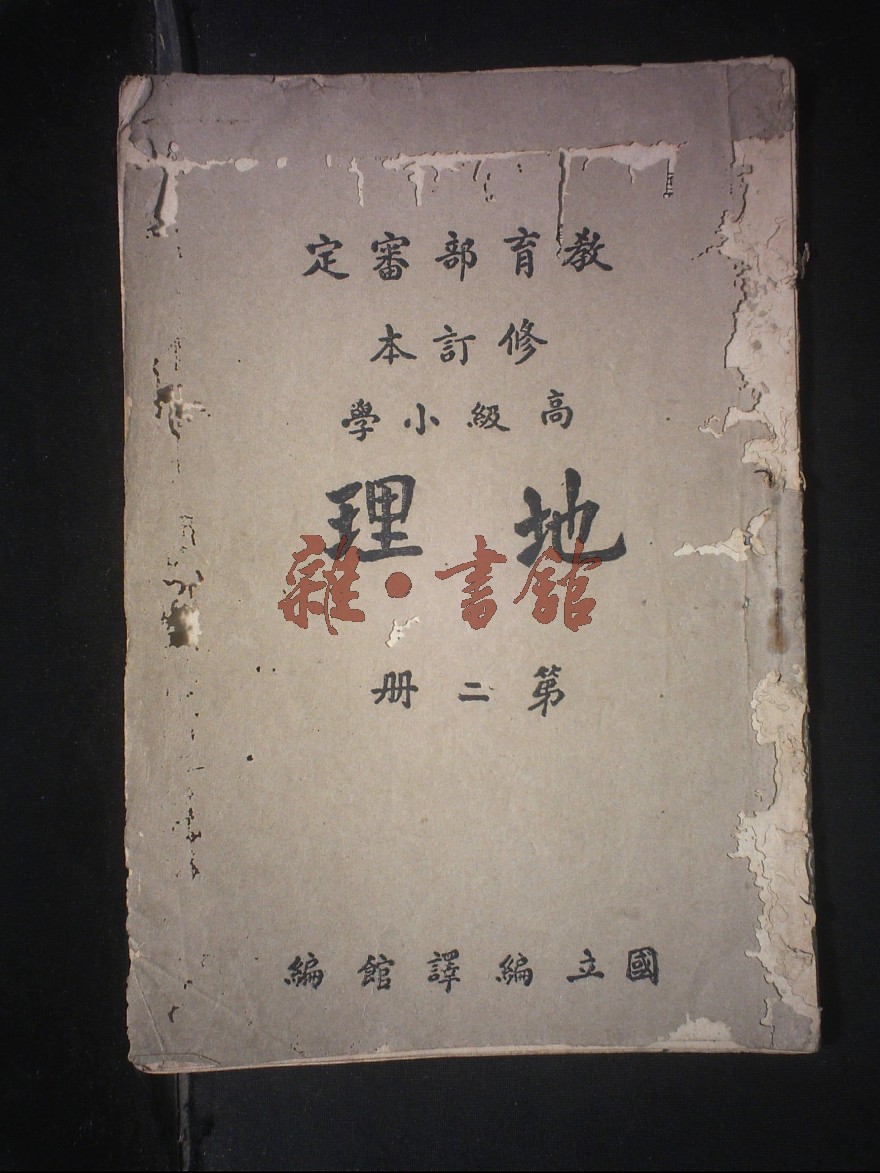 教育部審定
修訂本
高級小學
地理
雜·書館
第二册
國立編譯館編